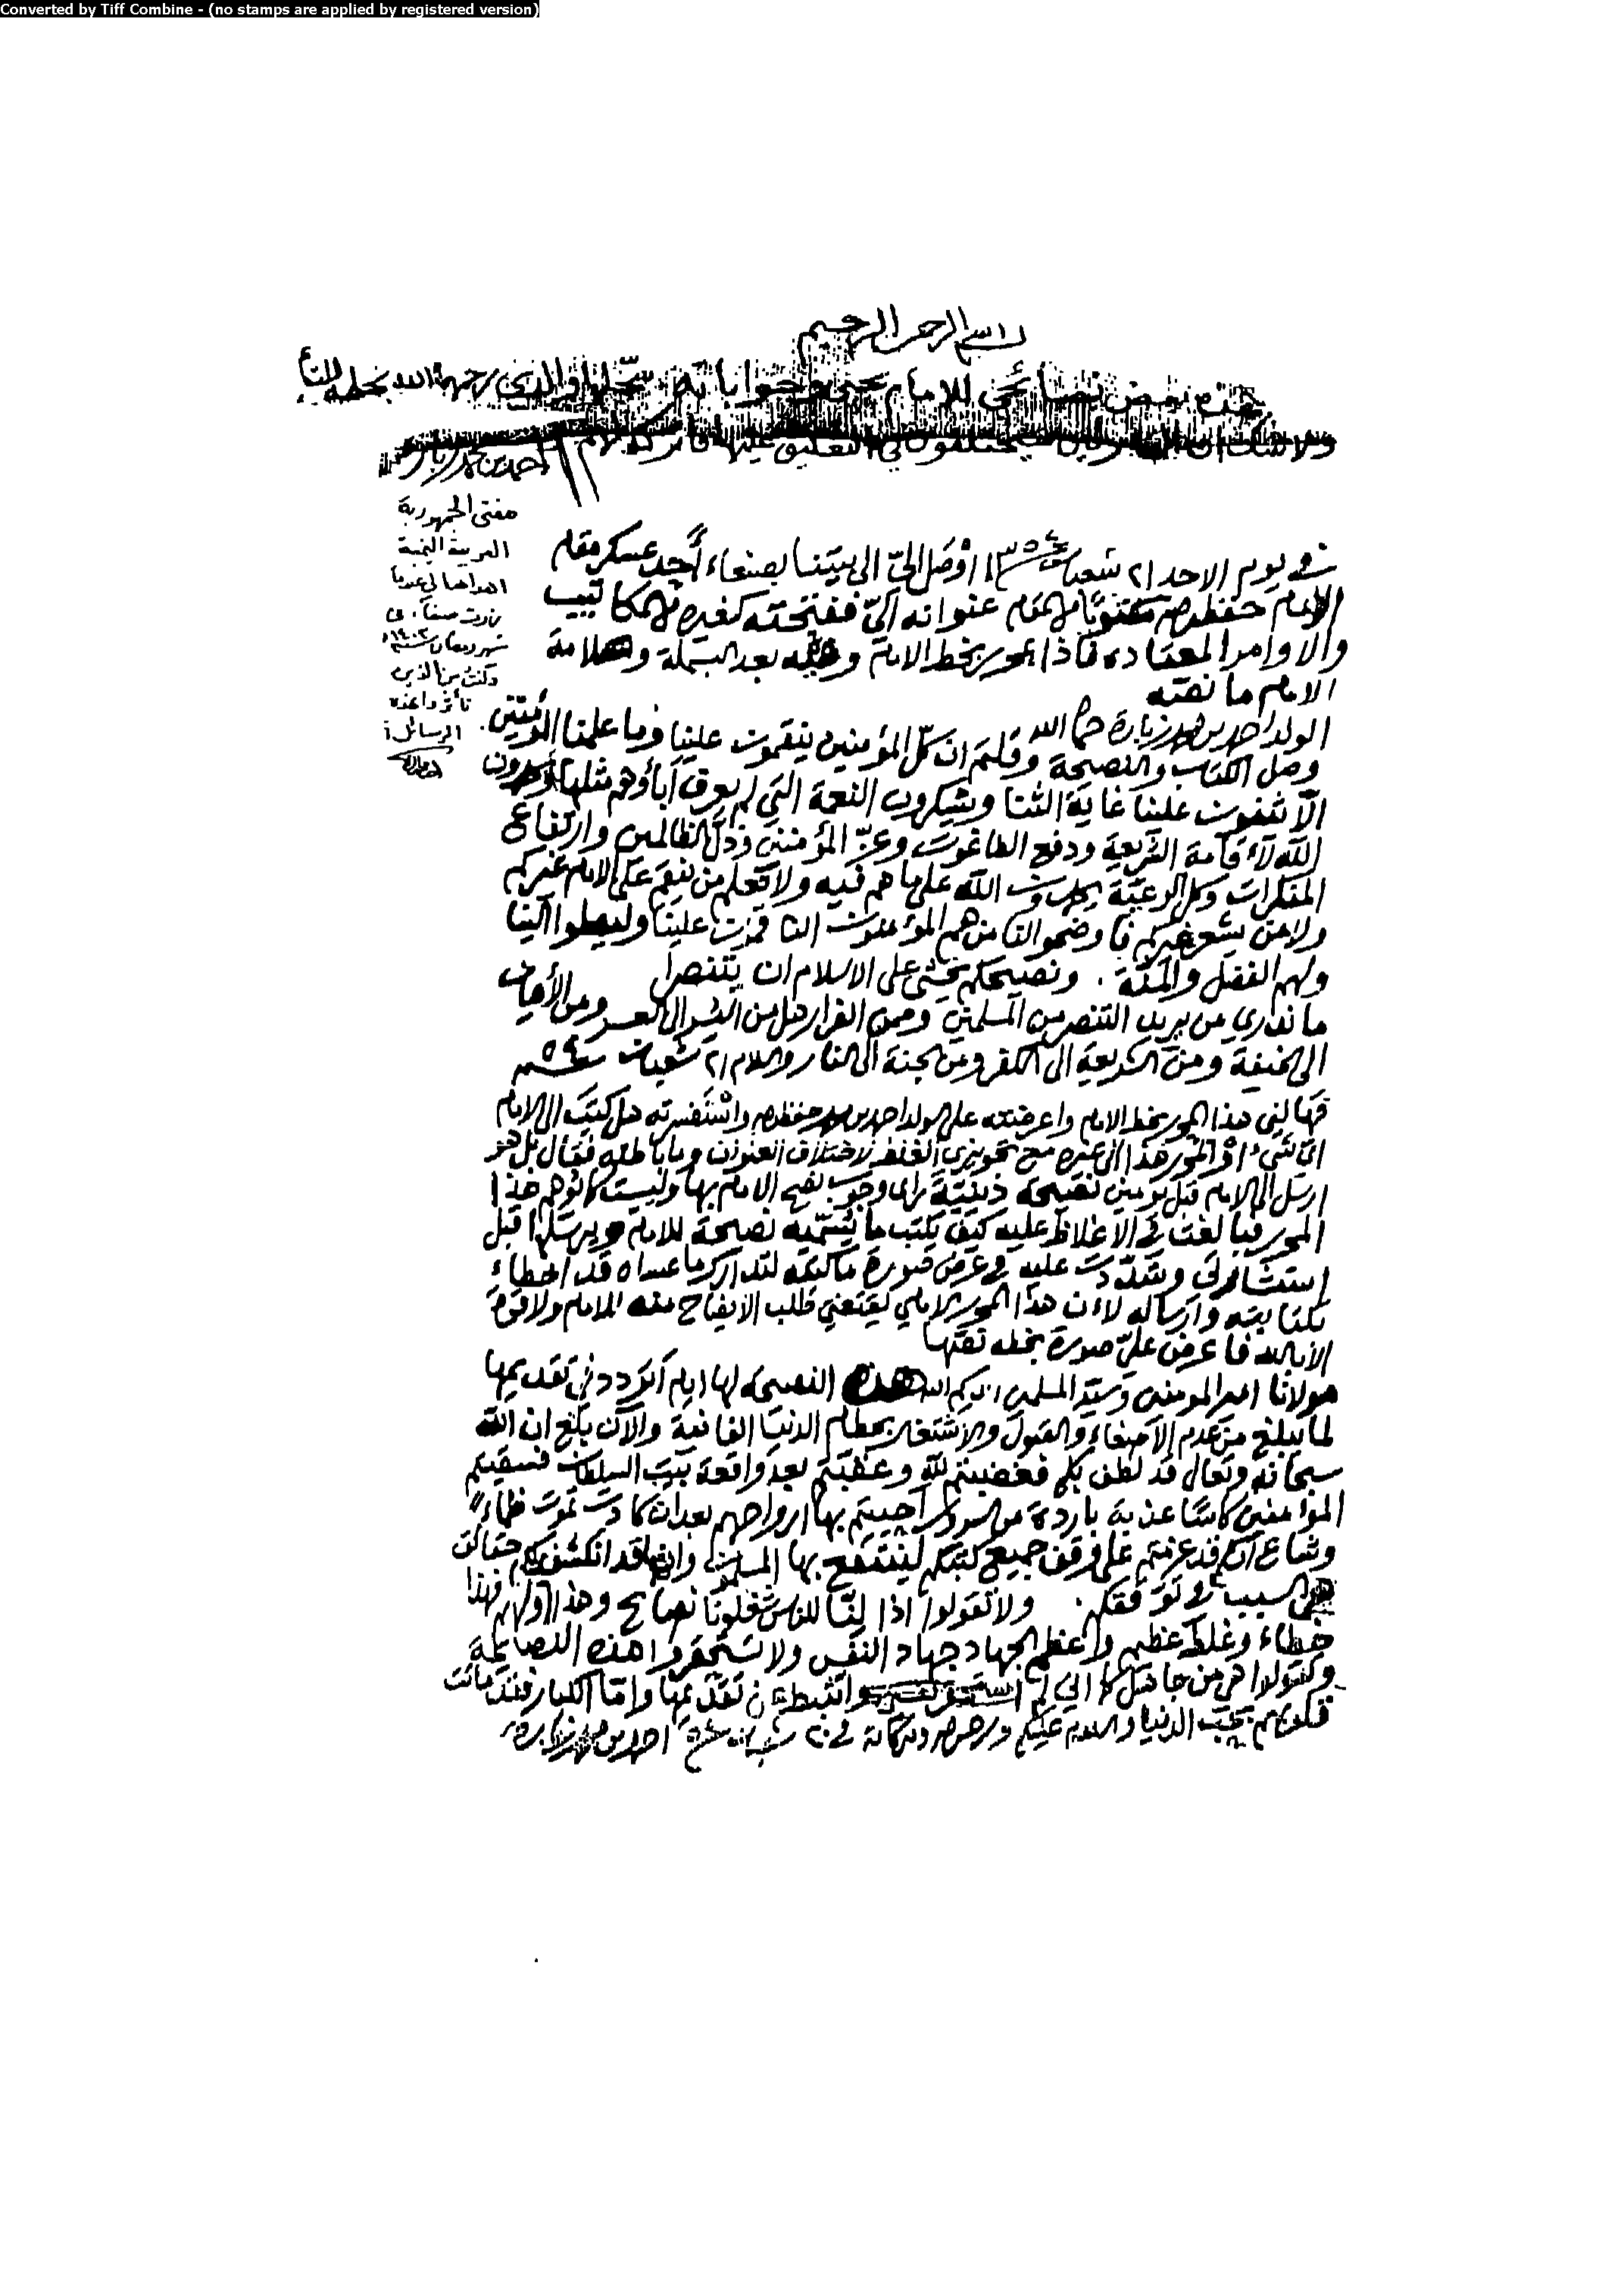 Converted by Tiff Combine - (no stamps are applied by registered version)
بسم الله الرحمن الرحيم
هذه بعض نصائحي للإمام يحيى وجواباته سجلها والدي رحمهما الله بخطه
ولا شك ان سيختلفون في التعليق عليها
احمد بن محمد زباره
مفتي الجمهورية
العربية اليمنية
اهداها لي عندما
زرت صنعاء في
شهر رمضان سنة ١٤٠٢
وكنت من الذين
الرسائل
في يوم الاحد ٢١ شعبان سنة ١٣٥٤ أوصل اليّ الى بيتنا بصنعاء أحد عسكر مقام
الإمام حفظه الله مكتوبًا من المقام عنوانه اليّ ففتحته كغيره من المكاتيب
والاوامر المعتاده فاذا هو محرر بخط الامام وفيه بعد البسملة وعلامة
الامام ما نصّه
الولد احمد بن محمد زبارة حماه الله
وصل الكتاب والنصيحة وقلتم ان كلّ المؤمنين ينقمون علينا وما علمنا المؤمنين
الّا يثنون علينا غاية الثنا ويشكرون النعمة التي لم يعرف آباؤهم مثلها ويحمدون
الله لإقامة الشريعة ودفع الطاغوت وعزّ المؤمنين وذلّ الظالمين وارتفاع
المنكرات وكل الرعيّة يحمدون الله على ما هم فيه ولا نعلم من ينقم على الامام غيركم
ولا من يشعر غيركم فأوضحوا لنا من هم المؤمنون الناقمون علينا وليصلوا الينا
ولهم الفضل والمنّة . ونصيحتكم تخشى على الاسلام ان يتنصر
ما ندري من يريد التنصر من المسلمين وممن الفرار هل من اليسر الى العسر ومن الأمان
الى الخيفة ومن الشريعة الى الكفر ومن الجنة الى النار والسلام ٢١ شعبان سنة ٥٤
فهالني هذا المحرر بخط الامام واعرضته على الولد احمد بن محمد حفظه الله واستفسرته هل كتب الى الامام
اي شيء او المحرر هذا الى غيره مع تجويزي الغلط لاختلاف العنوان وما باطنه فقال بل هو
ارسل الى الامام قبل يومين نصيحة دينيّة رأى وجوب نصح الامام بها وليست كما توهم هذا
المحرر فبالغت في الاغلاظ عليه كيف يكتب ما يُسمّيه نصيحة للامام ويرسلها قبل
استشارتي وشدّدت عليه في عرض صورة ما كتبه لتدارك ما عساه قد اخطاء
بكتابته وارساله لأن هذا المحرر الامامي يقتضي طلب الايضاح منه للامام ولا قوة
الا بالله فاعرض عليّ صورة بخطه نصّها
مولانا امير المومنين وسيّد المسلمين ايدكم الله هذه النصيحة لها ايام أتردد في تقديمها
لما يبلغ من عدم الاصغاء والقبول والاشتغال بحطام الدنيا الفانية والآن بلغ ان الله
سبحانه وتعالى قد لطف بكم فغضبتم لله وعقبتم بعد واقعة بيت السلطان فسقيتم
المؤمنين كاسًا عذبة باردة من السرور احييتم بها ارواحهم بعد ان كادت تموت ظماءً
وشاع انكم قد عزمتم على وقف جميع كتبكم لينتفع بها المسلمون وانها قد انكشف لكم حقائق
هي السبب في توفقكم. ولا تقولوا اذا لِنّا للناس شغلونا نصايح وهذا اولهم فهذا
خطاء وغلط عظيم واعظم الجهاد جهاد النفس ولا تستحقروا هذه النصايحة
وتقولوا هي من جاهل واتثبط عن تقديمها وامّا الكبار فقد ماتت
قلوبهم بحب الدنيا والسلام عليكم ورحمة الله وبركاته في ٢٠ شعبان سنة ٥٤ احمد بن محمد زباره